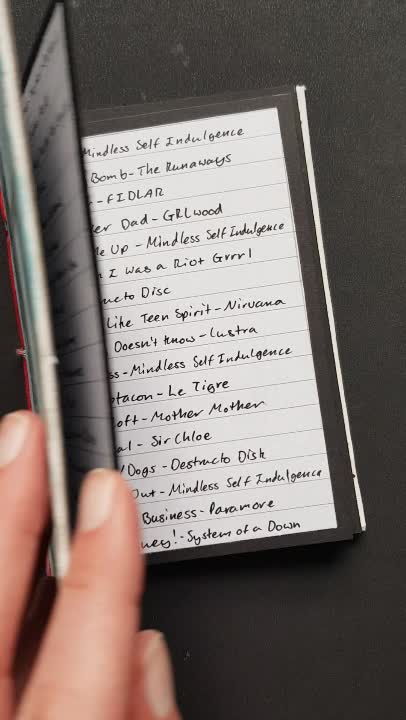 Mindless Self Indulgence
Bomb-The Runaways
-FIDLAR
er Dad-GRLwood
le Up - Mindless Self Indulgence
I Was a Riot Grrrl
ucto Disc
Like Teen Spirit-Nirvana
Doesn't know-Lustra
ss-Mindless Self Indulgence
otacon-Le Tigre
oft-Mother Mother
al-Sir Chloe
/Dogs-Destructo Disk
Out-Mindless Self Indulgence
Business-Paramore
uey!-System of a Down